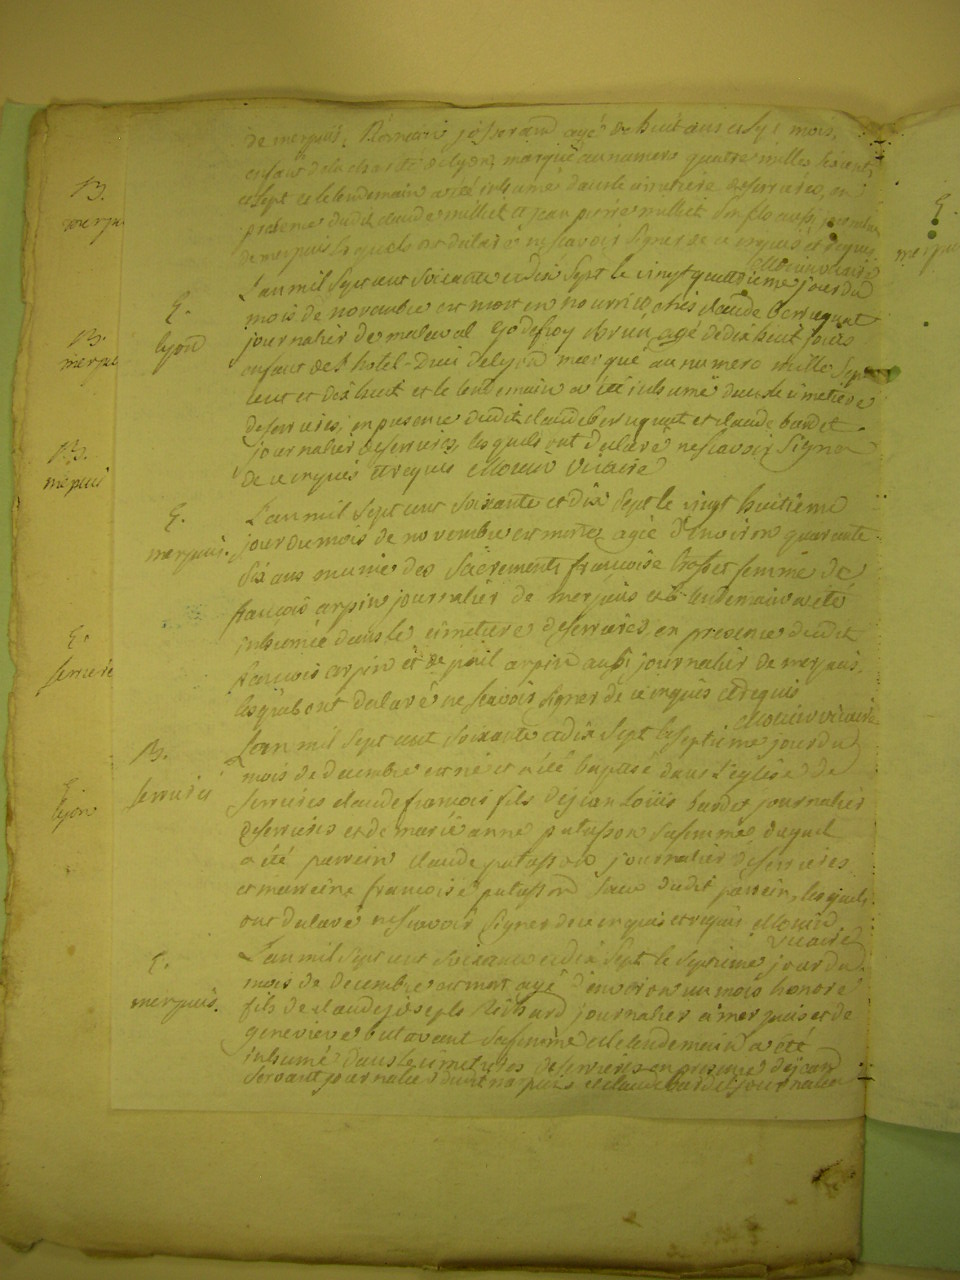 de merpuis, Romain josserand agé de huit ans et six mois,
enfant de la charité de lyon, marqué au numero quatre milles
et sept et le lendemain a été inhumé dans le cimetiere de serrieres, en
presence dudit claude milliet et jean pierre milliet son fils aussi journalier
de merpuis lesquels ont declaré ne scavoir signer de ce enquis et requis
Mouin vicaire
B.
merpuis
E.
lyon
L'an mil sept cent soixante et dix sept le vingt quatrieme jour du
mois de novembre est mort en nourrice chés claude berruquat
journalier de malaval Godefroy Brun agé de dix huit jours
enfant de l'hotel-Dieu de lyon marqué au numero mille sept
cent et dix huit et le lendemain a été inhumé dans le cimetiere
de serrieres, en presence dudit claude berruquat et claude bardet
journalier de serrieres, lesquels ont declaré ne scavoir signer
de ce enquis et requis Mouin vicaire
B.
merpuis
B.
merpuis
E.
merpuis.
L'an mil sept cent soixante et dix sept le vingt huitieme
jour du mois de novembre est morte agée d'environ quarante
six ans munie des sacrements françoise femme de
françois arpin journalier de merpuis et le lendemain a été
inhumée dans le cimetiere de serrieres en presence dudit
francois arpin et de arpin aussi journalier de merpuis,
lesquels ont declaré ne scavoir signer de ce enquis et requis
Mouin vicaire
E.
serrieres
B.
serrieres
L'an mil sept cent soixante et dix sept le septieme jour du
mois de decembre est né et a été baptisé dans l'eglise de
serrieres claude francois fils de jean loüis bardet journalier
de serrieres et de marie anne putasson sa femme duquel
a été parrein claude putasson journalier de serrieres
et marreine francoise putasson soeur dudit parrein, lesquels
ont declaré ne scavoir signer de ce enquis et requis Mouin
vicaire
E.
lyon
E.
merpuis.
L'an mil sept cent soixante et dix sept le septieme jour du
mois de decembre est mort agé d'environ un mois honoré
fils de claude joseph Richard journalier a merpuis et de
genevieve butavant sa femme et le lendemain a été
inhumé dans le cimetiere de serrieres en presence de jean
servant journalier dudit merpuis et claude bardet journalier
E.
merpuis